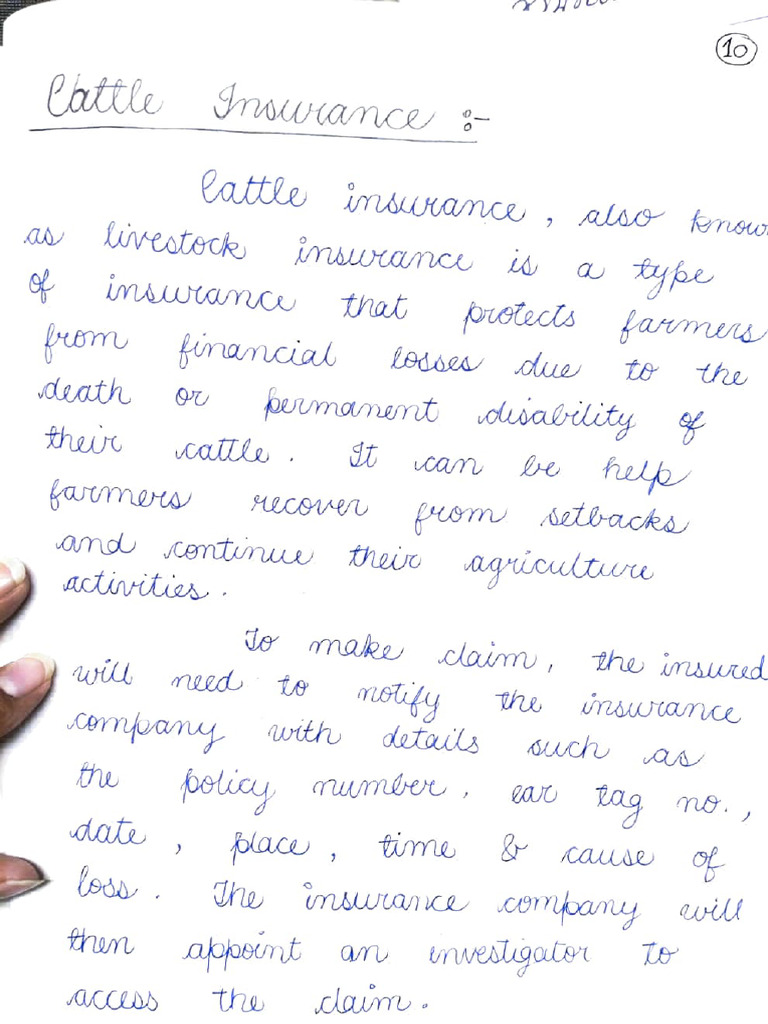 10
Cattle Insurance :-
Cattle insurance, also known
as livestock insurance is a type
of insurance that protects farmers
from financial losses due to the
death or permanent disability of
their cattle. It can be help
farmers recover from setbacks
and continue their agriculture
activities.
To make claim, the insured
will need to notify the insurance
company with details such as
the policy number, ear tag no.,
date, place, time & cause of
loss. The insurance company will
then appoint an investigator to
access the claim.